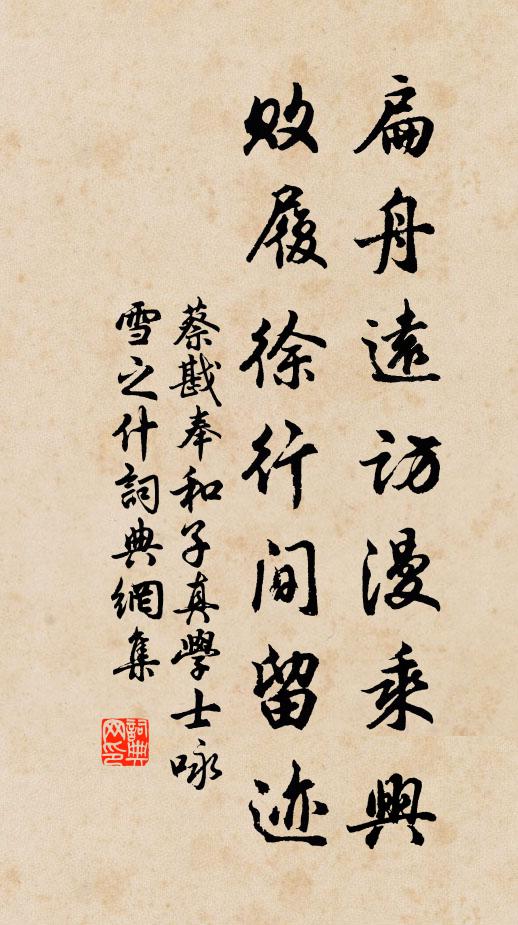 扁舟遠訪漫乘興
敗履徐行間留迹
蔡戡奉和子真學士咏
雪之什詞典網集
詞典网印